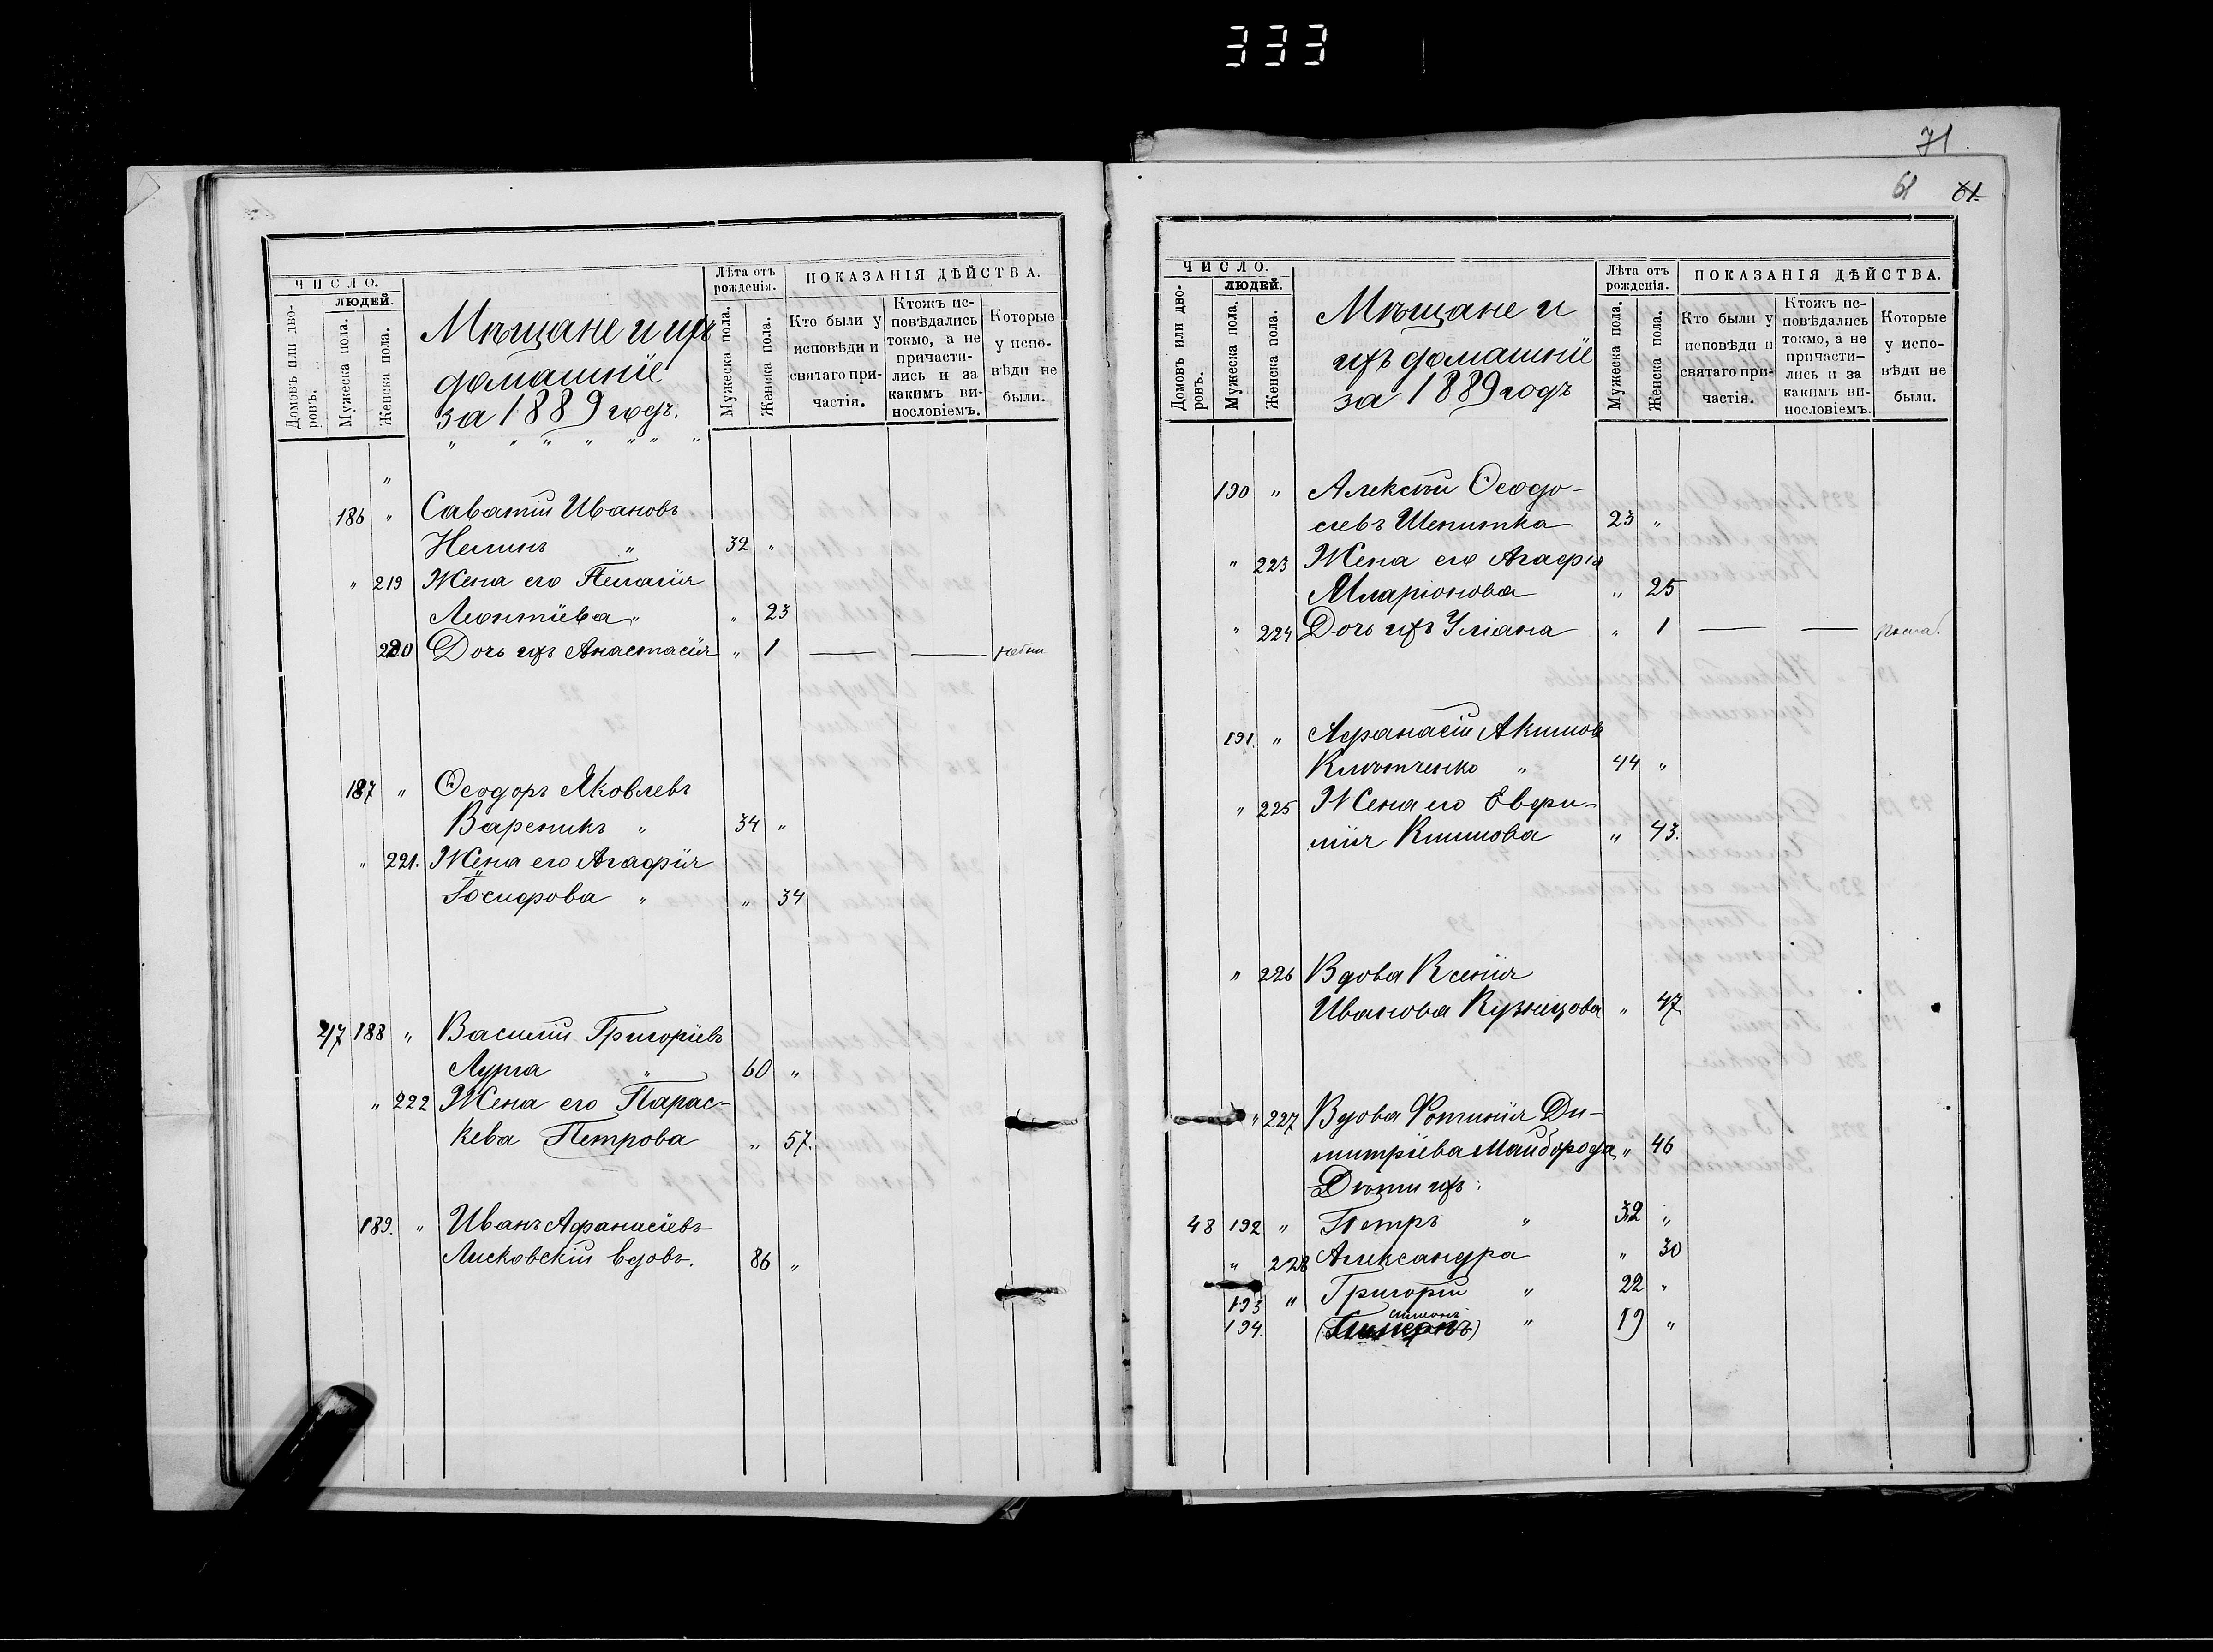 333
71
61 61.
ЧИСЛО.
ЛЮДЕЙ.
Домовъ или дворовъ.
Мужеска пола.
Женска пола.
Мѣщане и ихъ
домашніе
за 1889 годъ.
Лѣта отъ рожденія.
Мужеска пола.
Женска пола.
ПОКАЗАНІЯ ДѢЙСТВА.
Кто были у исповѣди и святаго причастія.
Ктожъ исповѣдались токмо, а не причастились и за какимъ винословіемъ.
Которые у исповѣди не были.
186 " Саватій Ивановъ
" 32 "
" 219 Жена его Пелагія
Леонтіева " " 23
220 Дочь ихъ Анастасія " 1 — —
187 " Ѳеодоръ Яковлевъ
Вареникъ " 34 "
" 221. Жена его Агафія
Іосифова " " 34
47 188 " Василій Григоріевъ
Лупа " 60 "
" 222 Жена его Парас-
кева Петрова " 57.
189. " Иванъ Афанасіевъ
Лисковскій вдовъ. 86 "
ЧИСЛО.
ЛЮДЕЙ.
Домовъ или дворовъ.
Мужеска пола.
Женска пола.
Мѣщане и
ихъ домашніе
за 1889 годъ
Лѣта отъ рожденія.
Мужеска пола.
Женска пола.
ПОКАЗАНІЯ ДѢЙСТВА.
Кто были у исповѣди и святаго причастія.
Ктожъ исповѣдались токмо, а не причастились и за какимъ винословіемъ.
Которые у исповѣди не были.
190 " Алексѣй Ѳеодо-
сіевъ Шепитка 23 "
" 223 Жена его Агафія
Иларіонова " 25
" 224 Дочь ихъ Уліана " 1 — —
191. " Афанасій Акимовъ
Климченко " 44 "
" 225 Жена его Евфи-
мія Климова " 43.
" 226 Вдова Ксенія
Иванова Кузнецова " 47
" 227 Вдова Фотинія Ди-
митріева Майборода " 46
Дѣти ихъ:
48 192 " Петръ " 32 "
" 228 Александра " 30
193 " Григорій " 22 "
Симеонъ
194. " 19 "